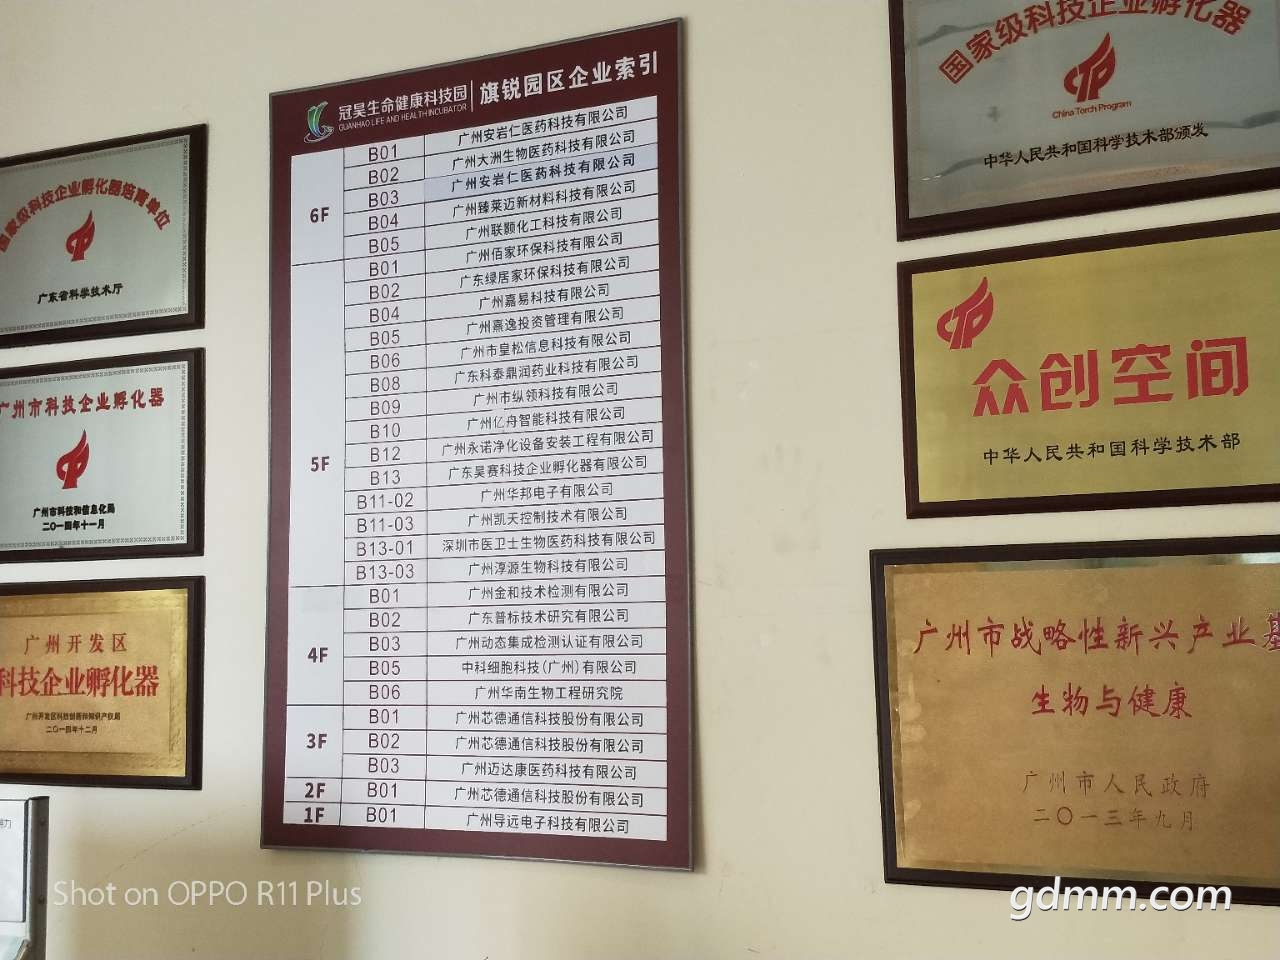 国家级科技企业孵化器培育单位
广东省科学技术厅
广州市科技企业孵化器
广州市科技和信息化局
二〇一四年十一月
广州开发区
科技企业孵化器
广州开发区科技创新和知识产权局
二〇一四年十二月
冠昊生命健康科技园
GUANHAO LIFE AND HEALTH INCUBATOR
旗锐园区企业索引
6F
B01 广州安岩仁医药科技有限公司
B02 广州大洲生物医药科技有限公司
B03 广州安岩仁医药科技有限公司
B04 广州臻莱迈新材料科技有限公司
B05 广州联颢化工科技有限公司
广州佰家环保科技有限公司
5F
B01 广东绿居家环保科技有限公司
B02 广州嘉易科技有限公司
B04 广州熹逸投资管理有限公司
B05 广州市皇松信息科技有限公司
B06 广东科泰鼎润药业科技有限公司
B08 广州市纵领科技有限公司
B09 广州亿舟智能科技有限公司
B10 广州永诺净化设备安装工程有限公司
B12 广东昊赛科技企业孵化器有限公司
B13
B11-02 广州华邦电子有限公司
B11-03 广州凯天控制技术有限公司
B13-01 深圳市医卫士生物医药科技有限公司
B13-03 广州淳源生物科技有限公司
4F
B01 广州金和技术检测有限公司
B02 广东普标技术研究有限公司
B03 广州动态集成检测认证有限公司
B05 中科细胞科技(广州)有限公司
B06 广州华南生物工程研究院
3F
B01 广州芯德通信科技股份有限公司
B02 广州芯德通信科技股份有限公司
B03 广州迈达康医药科技有限公司
2F B01 广州芯德通信科技股份有限公司
1F B01 广州导远电子科技有限公司
国家级科技企业孵化器
China Torch Program
中华人民共和国科学技术部颁发
众创空间
中华人民共和国科学技术部
广州市战略性新兴产业基
生物与健康
广州市人民政府
二〇一三年九月
Shot on OPPO R11 Plus
gdmm.com